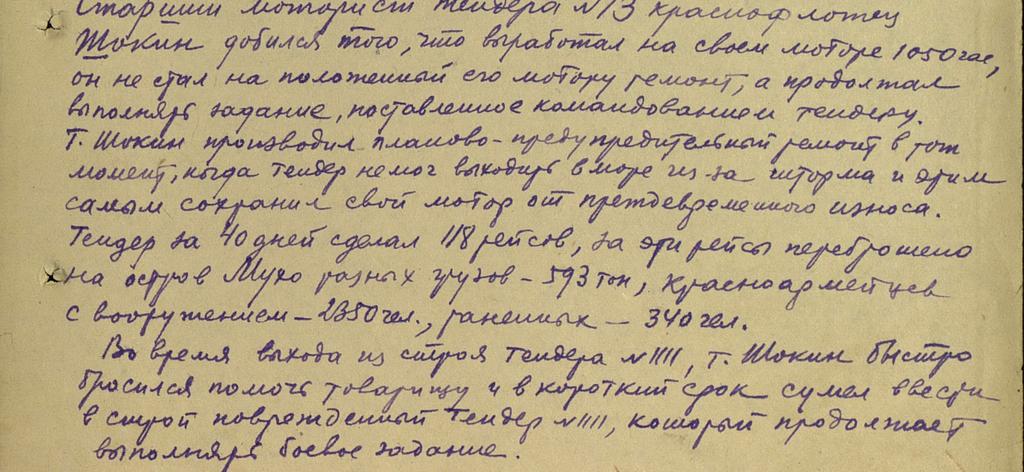 Старший моторист тендера №13 краснофлотец
Шокин добился того, что выработал на своем моторе 1050 час,
он не стал на положенный его мотору ремонт, а продолжал
выполнять задание, поставленное командованием тендеру.
Т. Шокин производил планово-предупредительный ремонт в тот
момент, когда тендер не мог выходить в море из-за шторма и этим
самым сохранил свой мотор от преждевременного износа.
Тендер за 40 дней сделал 118 рейсов, за эти рейсы переброшено
на остров Мухо разных грузов – 593 тон, красноармейцев
с вооружением – 2350 чел., раненных – 340 чел.
Во время выхода из строя тендера №1111, т. Шокин быстро
бросился помочь товарищу и в короткий срок сумел ввести
в строй поврежденный тендер №1111, который продолжает
выполнять боевое задание.